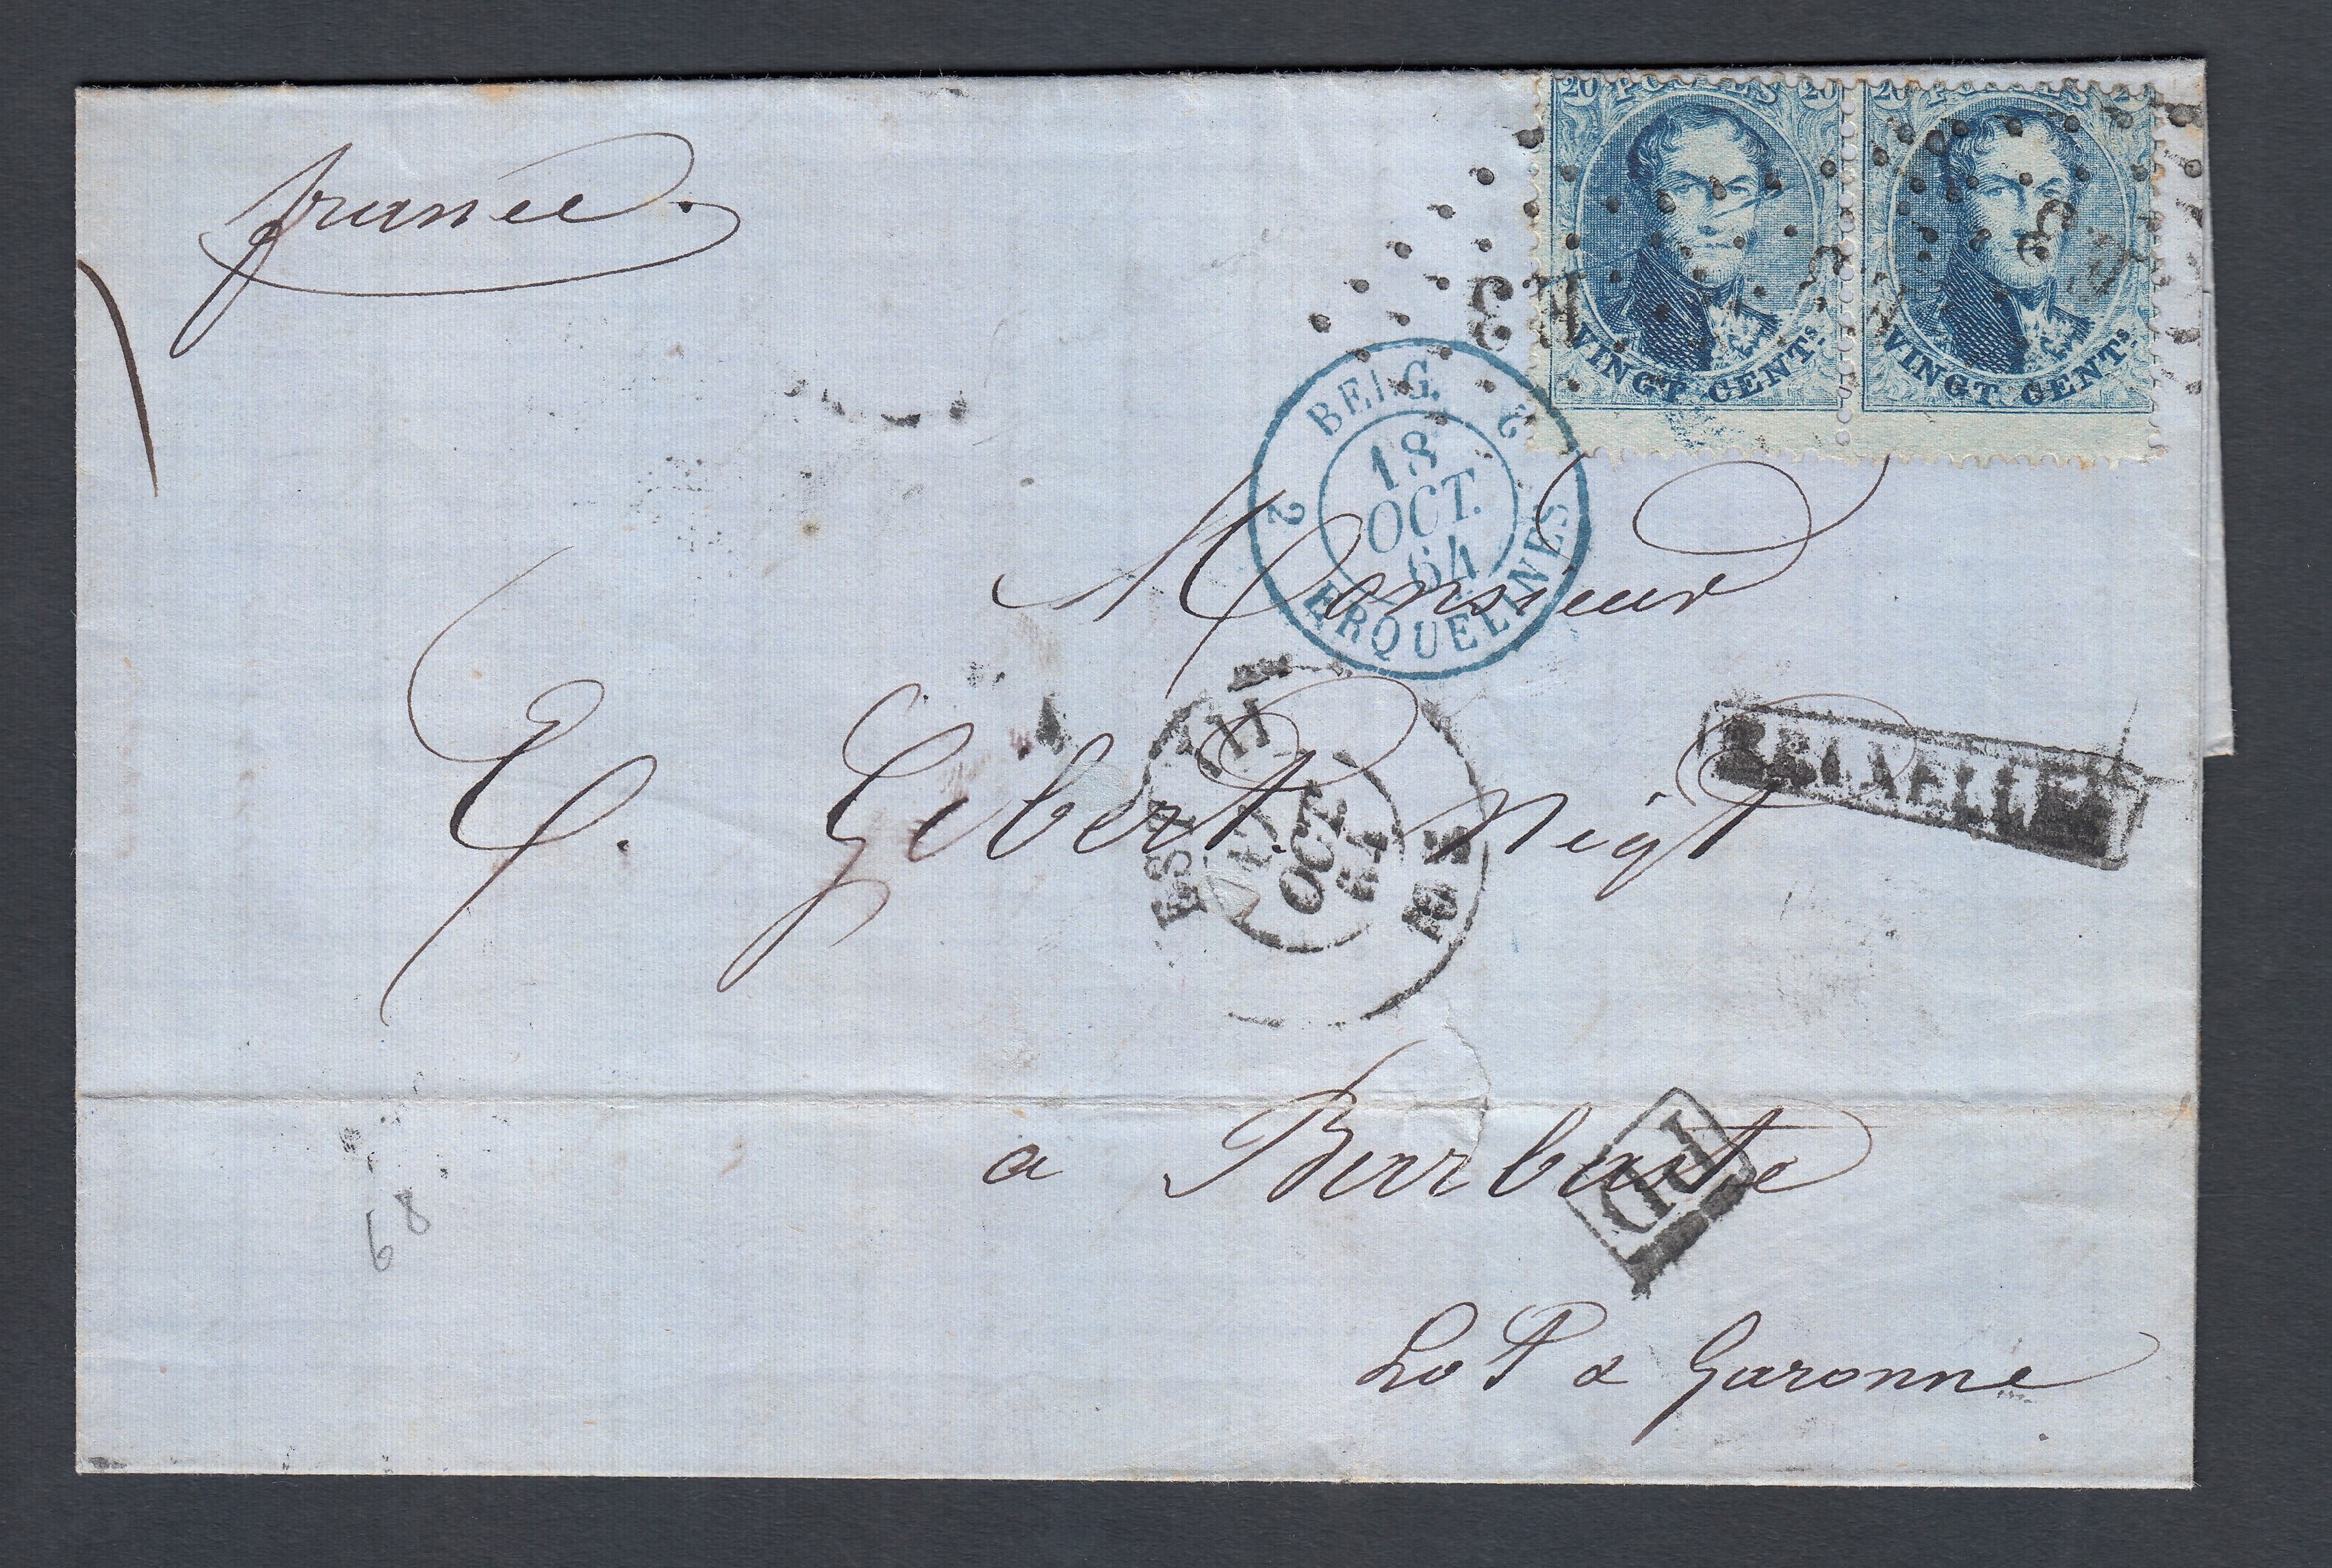 france.
20 POSTES 20
VINGT CENTS.
20 POSTES 20
VINGT CENTS.
BELG. 2
18
OCT.
64
2 ERQUELINES
Monsieur
E. Gibert. Nigt
OCT
BRUXELLES
a Barbaste
PD
Lot & Garonne
68